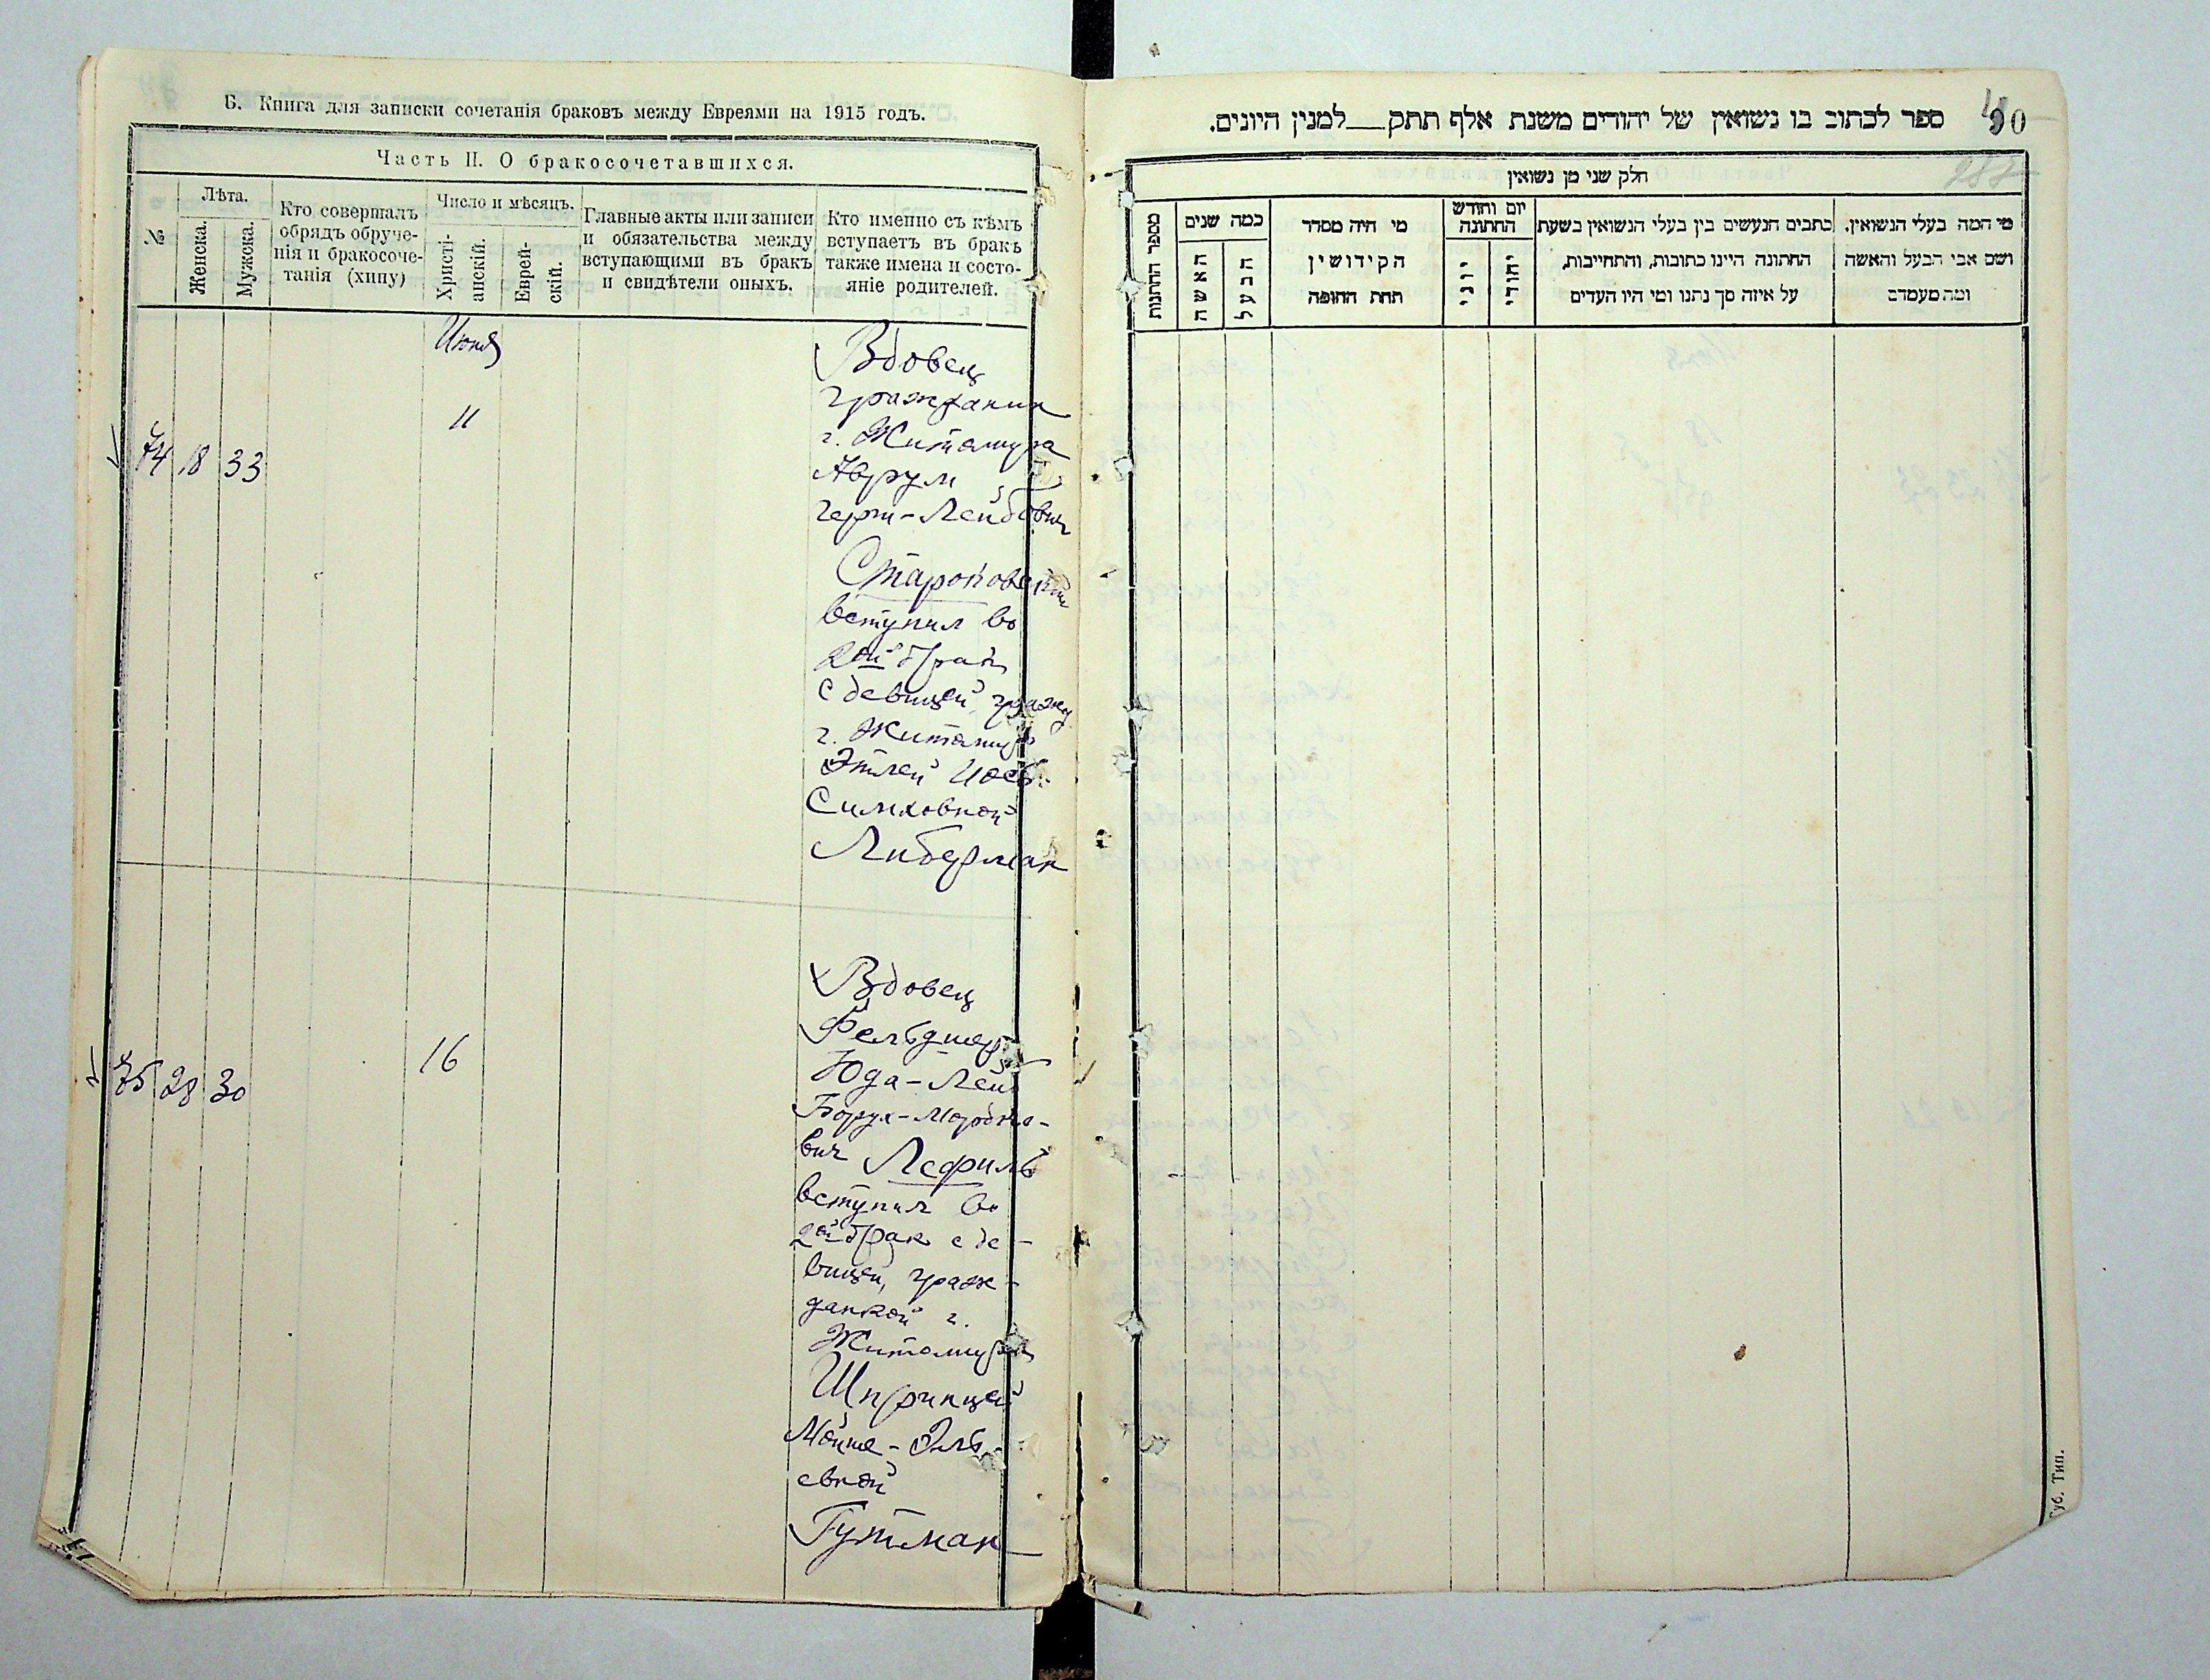 Б. Книга для записки сочетанія браковъ между Евреями на 1915 годъ.
Часть II. О бракосочетавшихся.
№
Лѣта.
Женска.
Мужска.
Кто совершалъ
обрядъ обруче-
нія и бракосоче-
танія (хипу)
Число и мѣсяцъ.
Христі-
анскій.
Еврей-
скій.
Главные акты или записи
и обязательства между
вступающими въ бракъ
и свидѣтели оныхъ.
Кто именно съ кѣмъ
вступаетъ въ бракъ
также имена и состо-
яніе родителей.
Июня
74 18 33
11
Вдовец
гражданин
г. Житомира
Аврум
Герш-Лейбович
вступил во
2ой брак
с девицей, гражд
г. Житомира
Этлей Иос
Симховной
Либерман
75 28 30
16
Вдовец
Фельдшер
Юда-Лейб
Борух-Мордко-
вич
вступил во
2ой брак с де-
вицей, граж-
данкой г.
Житомира
Шпринцей
Мойше-Эль-
евной
Гутман
ספר לכתוב בו נשואין של יהודים משנת אלף תתק___למנין היונים.
90
חלק שני מן נשואין
מספר החתונות
כמה שנים
האשה
הבעל
מי היה מסדר
הקידושין
תחת החופה
יום וחודש
החתונה
יוני
יהודי
כתבים הנעשים בין בעלי הנשואין בשעת
החתונה היינו כתובות, והתחייבות,
על איזה סך נתנו ומי היו העדים
מי המה בעלי הנשואין.
ושם אבי הבעל והאשה
ומה מעמדם
Губ. Тип.